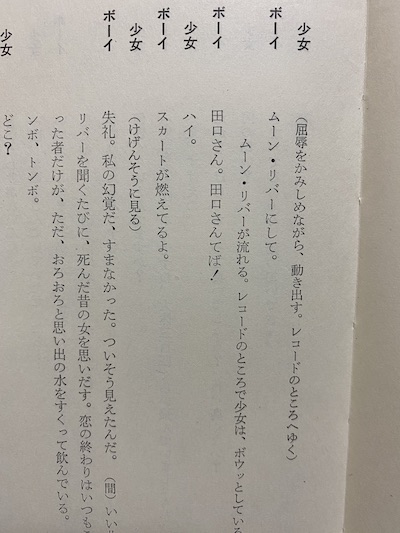 少女　（屈辱をかみしめながら、動き出す。レコードのところへゆく）
ボーイ　ムーン・リバーにして。
ムーン・リバーが流れる。レコードのところで少女は、ボウッとしている
ボーイ　田口さん。田口さんてば！
少女　ハイ。
ボーイ　スカートが燃えてるよ。
少女　（けげんそうに見る）
ボーイ　失礼。私の幻覚だ、すまなかった。ついそう見えたんだ。（間）いい
リバーを聞くたびに、死んだ昔の女を思いだす。恋の終わりはいつも
った者だけが、ただ、おろおろと思い出の水をすくって飲んでいる。
ンボ、トンボ。
少女　どこ？